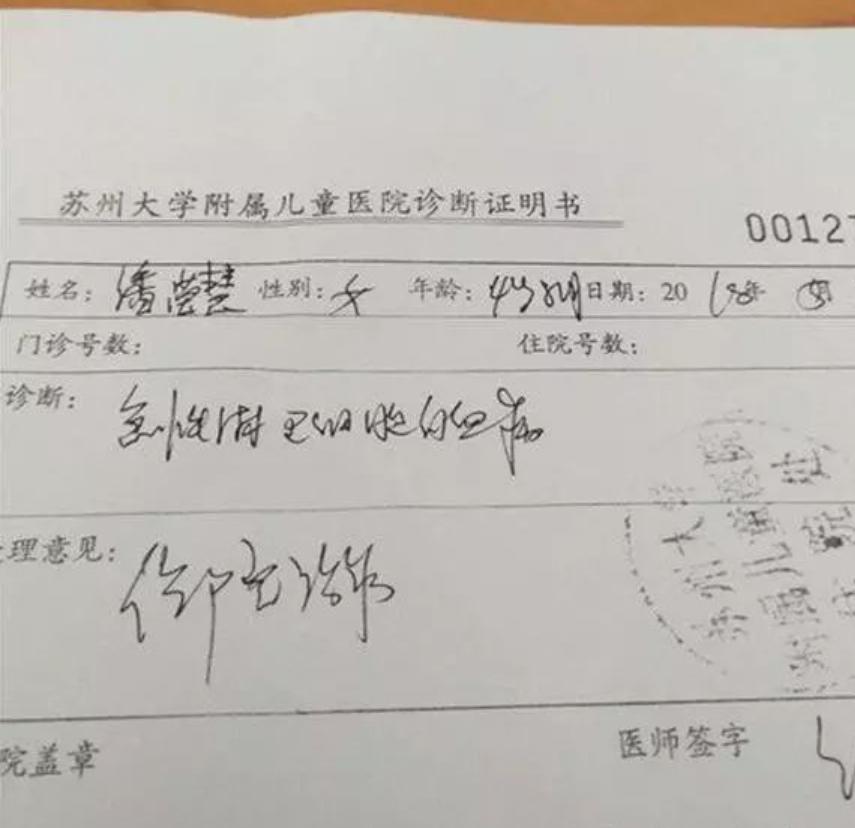 苏州大学附属儿童医院诊断证明书
00127
姓名：潘莹慧 性别：女 年龄：4岁 日期：2018年
门诊号数： 住院号数：
诊断： 急性淋巴细胞白血病
理意见： 住院治疗
院盖章 医师签字